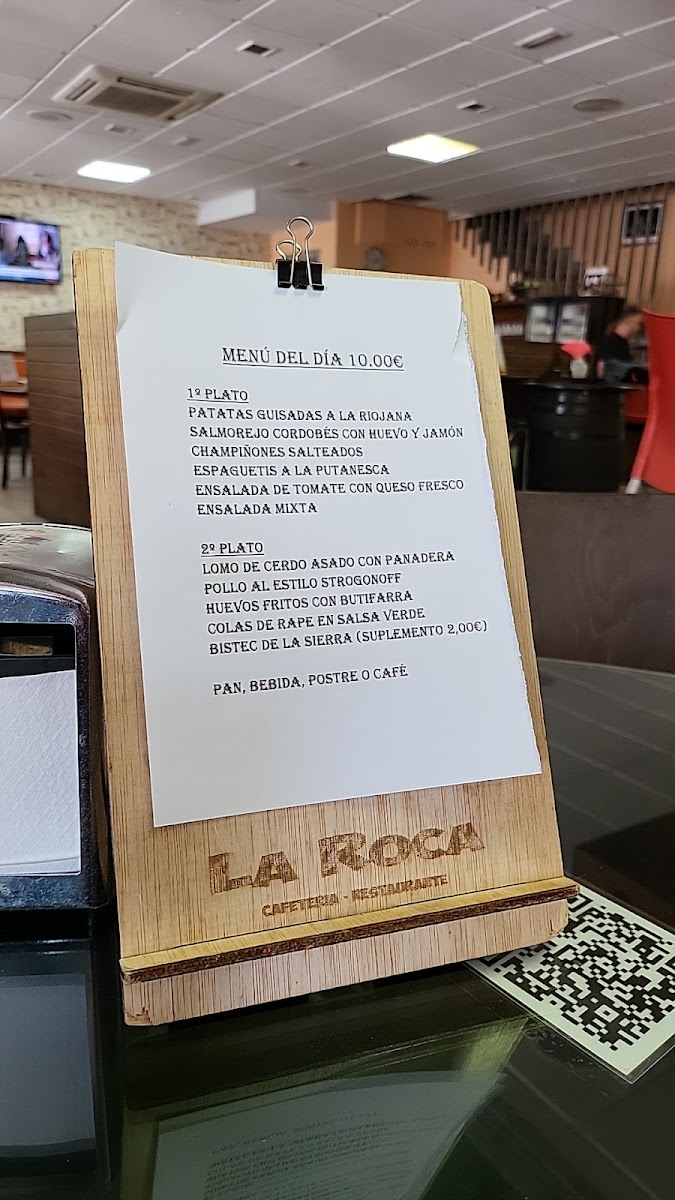 MENÚ DEL DÍA 10.00€
1º PLATO
PATATAS GUISADAS A LA RIOJANA
SALMOREJO CORDOBÉS CON HUEVO Y JAMÓN
CHAMPIÑONES SALTEADOS
ESPAGUETIS A LA PUTANESCA
ENSALADA DE TOMATE CON QUESO FRESCO
ENSALADA MIXTA
2º PLATO
LOMO DE CERDO ASADO CON PANADERA
POLLO AL ESTILO STROGONOFF
HUEVOS FRITOS CON BUTIFARRA
COLAS DE RAPE EN SALSA VERDE
BISTEC DE LA SIERRA (SUPLEMENTO 2,00€)
PAN, BEBIDA, POSTRE O CAFÉ
LA ROCA
CAFETERIA - RESTAURANTE